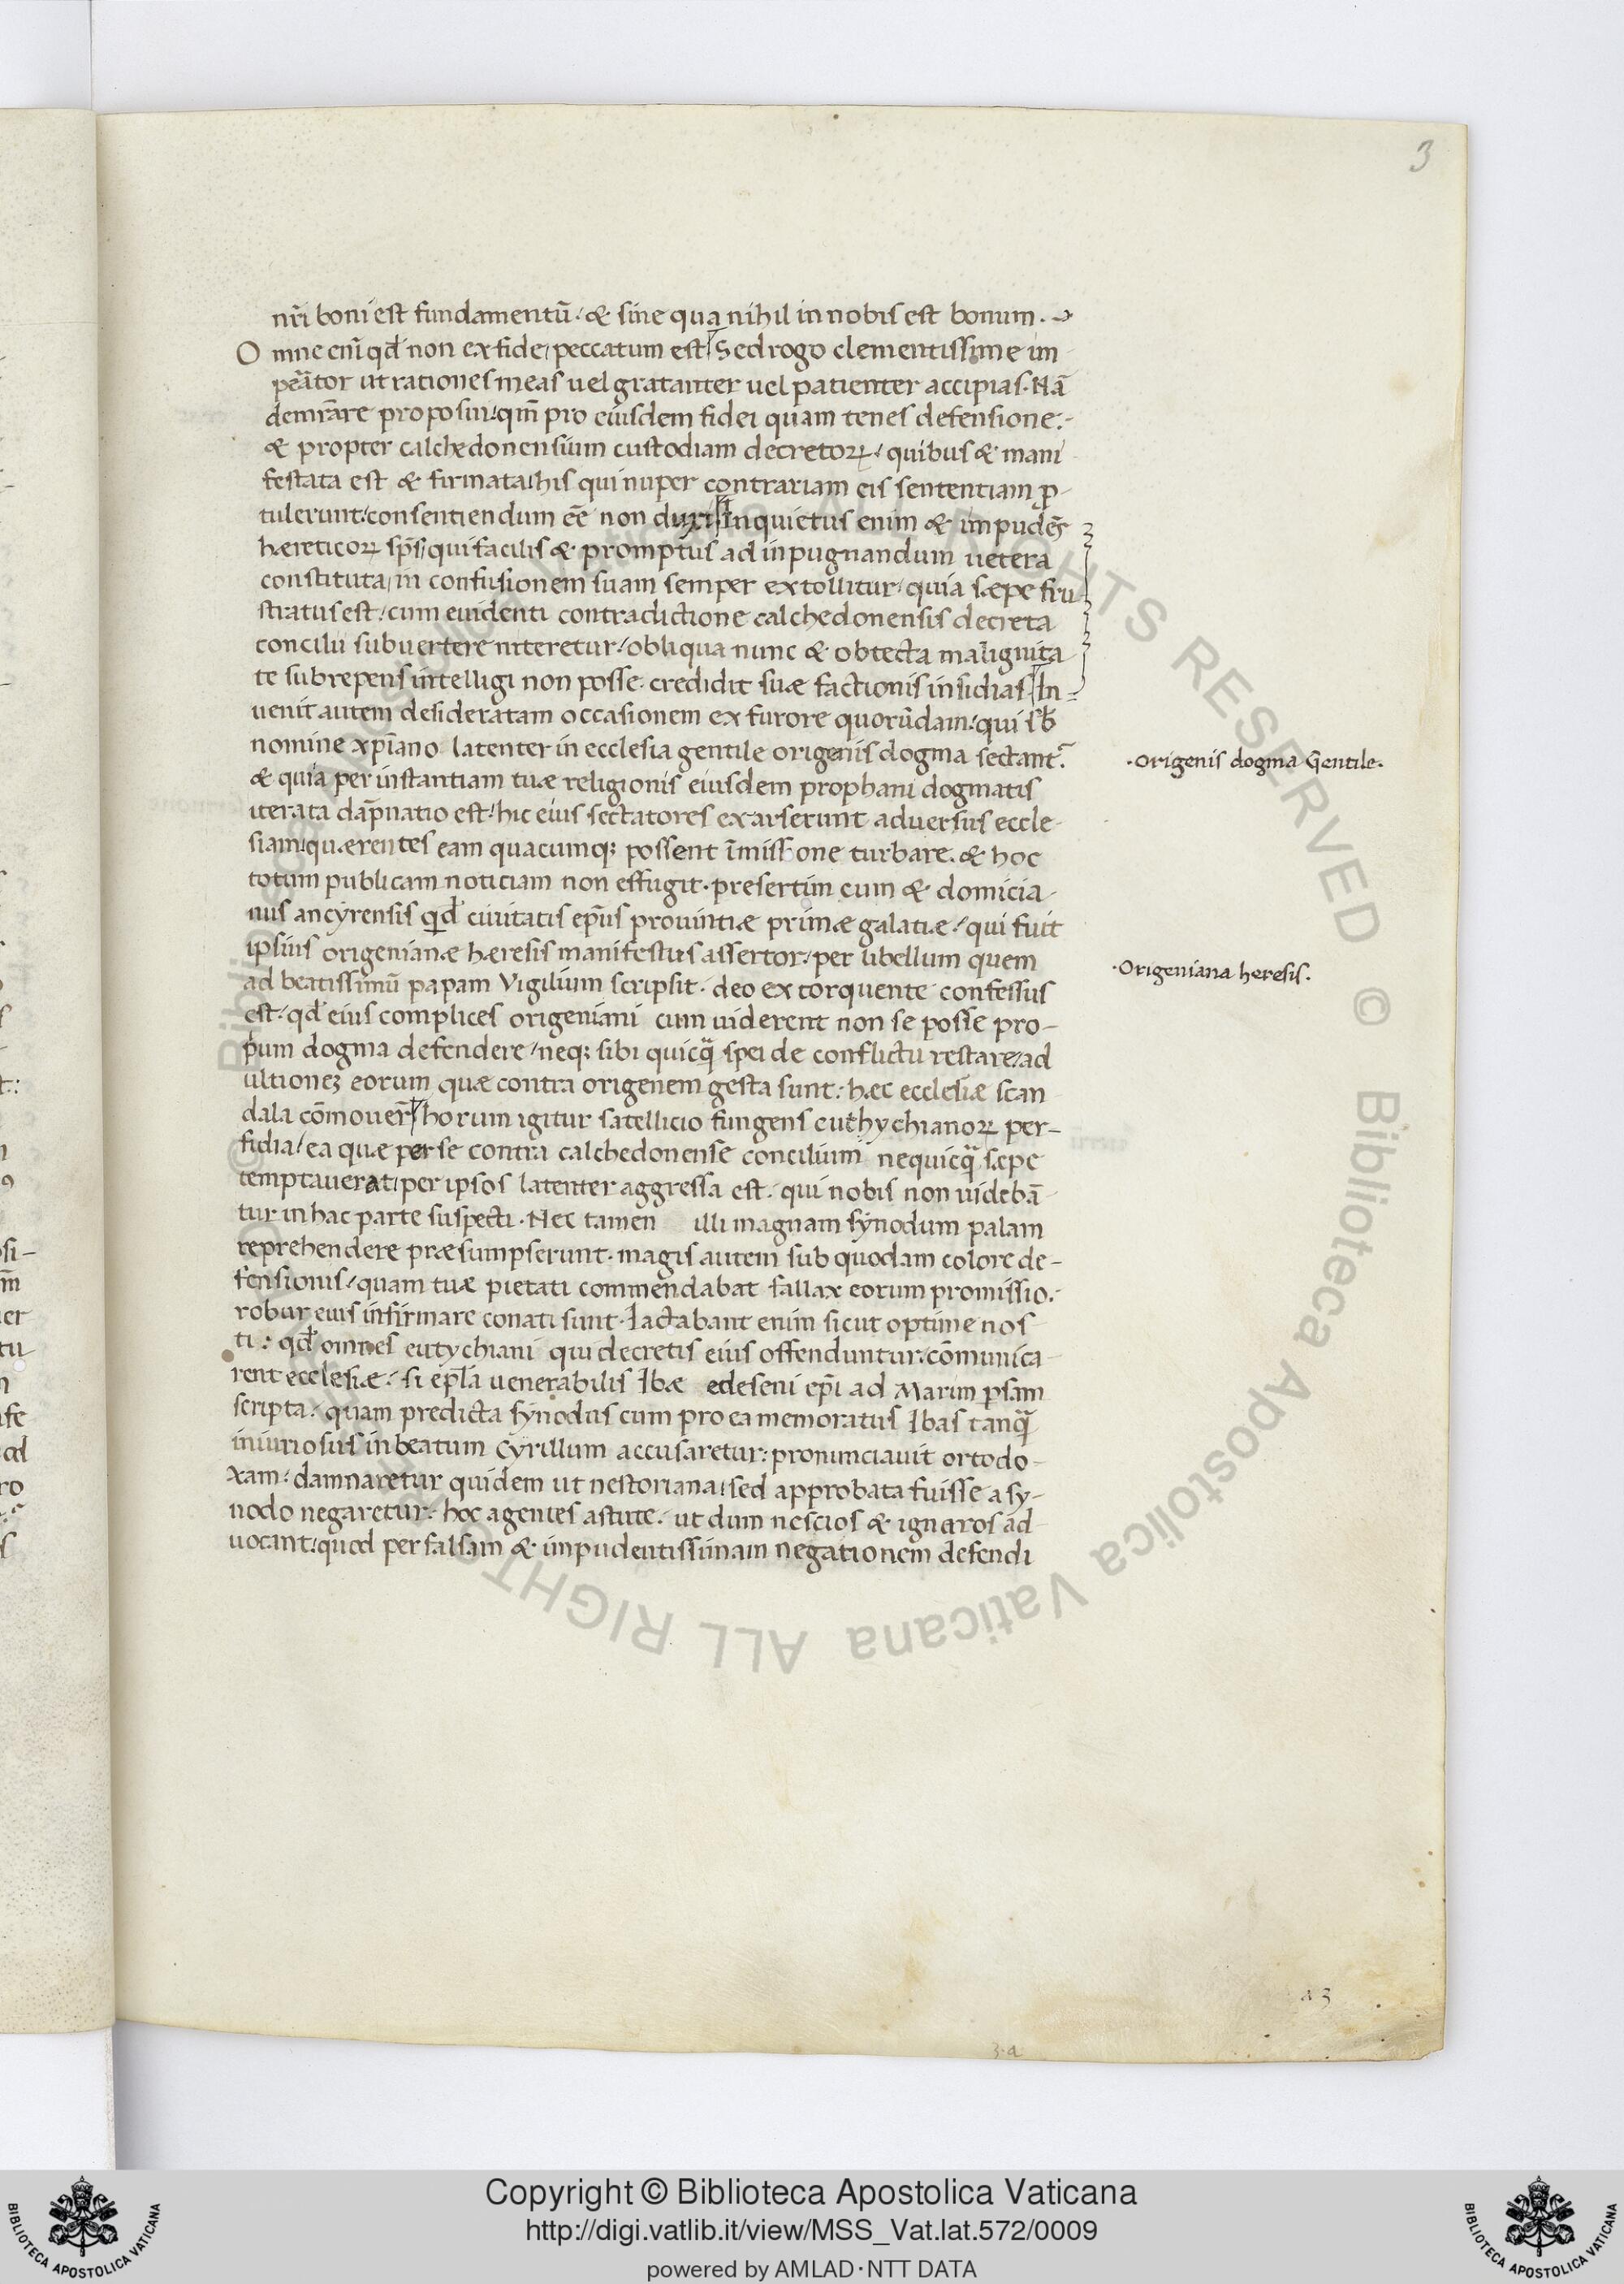 3
nr̄i boni est fundamentū. & sine qua nihil in nobis est bonum.
Omne enī qđ non ex fide, peccatum est. Sed rogo clementissime im
pērator ut rationes meas uel gratanter uel patienter accipias. Nā
demr̄are proposui. qm̄ pro eiusdem fidei quam tenes defensione.
& propter calchedonensium custodiam decretoꝝ. quibus & mani
festata est & firmata. his qui nuper contrariam eis sententiam p̲
tulerunt. consentiendum eē non duxi. Inquietus enim & impudēs
hæreticoꝝ sp̄s, qui facilis & promptus ad inpugnandum uetera
constituta, in confusionem suam semper extollitur, quia sæpe fru
stratus est, cum euidenti contradictione calchedonensis decreta
concilii subuertere niteretur, obliqua nunc & obtecta malignita
te subrepens intelligi non posse credidit suæ factionis insidias. In
uenit autem desideratam occasionem ex furore quorūdam, qui sƀ
nomine xp̄iano latenter in ecclesia gentile origenis dogma sectant᷑.
& quia per instantiam tuæ religionis eiusdem prophani dogmatis
iterata dāpnatio est, hic eius sectatores exarserunt aduersus eccle
siam, quærentes eam quacumq; possent īmissione turbare. & hoc
totum publicam noticiam non effugit. presertim cum & domicia
nus ancyrensis qđ ciuitatis ep̄us prouintiæ primæ galatiæ, qui fuit
ipsius origenianæ hæresis manifestus assertor, per libellum quem
ad beatissimū papam Vigilium scripsit. deo extorquente confessus
est, qđ eius complices origeniani cum uiderent non se posse pro-
pium dogma defendere, neq; sibi quicq̄ spei de conflictu restare, ad
ultioneꝫ eorum quæ contra origenem gesta sunt. hæc ecclesiæ scan
dala cōmouer̄. horum igitur satellicio fungens euthychianoꝝ per-
fidia, ea quæ per se contra calchedonense concilium nequicq̄ sæpe
temptauerat, per ipsos latenter aggressa est. qui nobis non uidebā
tur in hac parte suspecti. Nec tamen illi magnam synodum palam
reprehendere præsumpserunt. magis autem sub quodam colore de-
fensionis, quam tuæ pietati commendabat fallax eorum promissio.
robur eius infirmare conati sunt. Iactabant enim sicut optime nos
ti: qđ omnes eutychiani qui decretis eius offenduntur, cōmunica
rent ecclesiæ, si ep̄la uenerabilis Ibæ edeseni ep̄i ad Marim p̱sam
scripta, quam predicta synodus cum pro ea memoratus Ibas tanq̄
iniuriosus in beatum Cyrillum accusaretur, pronunciauit ortodo-
xam, damnaretur quidem ut nestoriana, sed approbata fuisse a sy-
nodo negaretur. hoc agentes astute, ut dum nescios & ignaros ad
uocant, quod per falsam & impudentissimam negationem defendi
·Origenis dogma Gentile.
·Origeniana heresis.
a 3
3·a
Copyright © Biblioteca Apostolica Vaticana
http://digi.vatlib.it/view/MSS_Vat.lat.572/0009
powered by AMLAD·NTT DATA
BIBLIOTECA APOSTOLICA VATICANA
BIBLIOTECA APOSTOLICA VATICANA